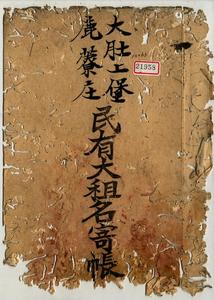 大肚上堡
鹿藔庄
民有大租名寄帳
21958